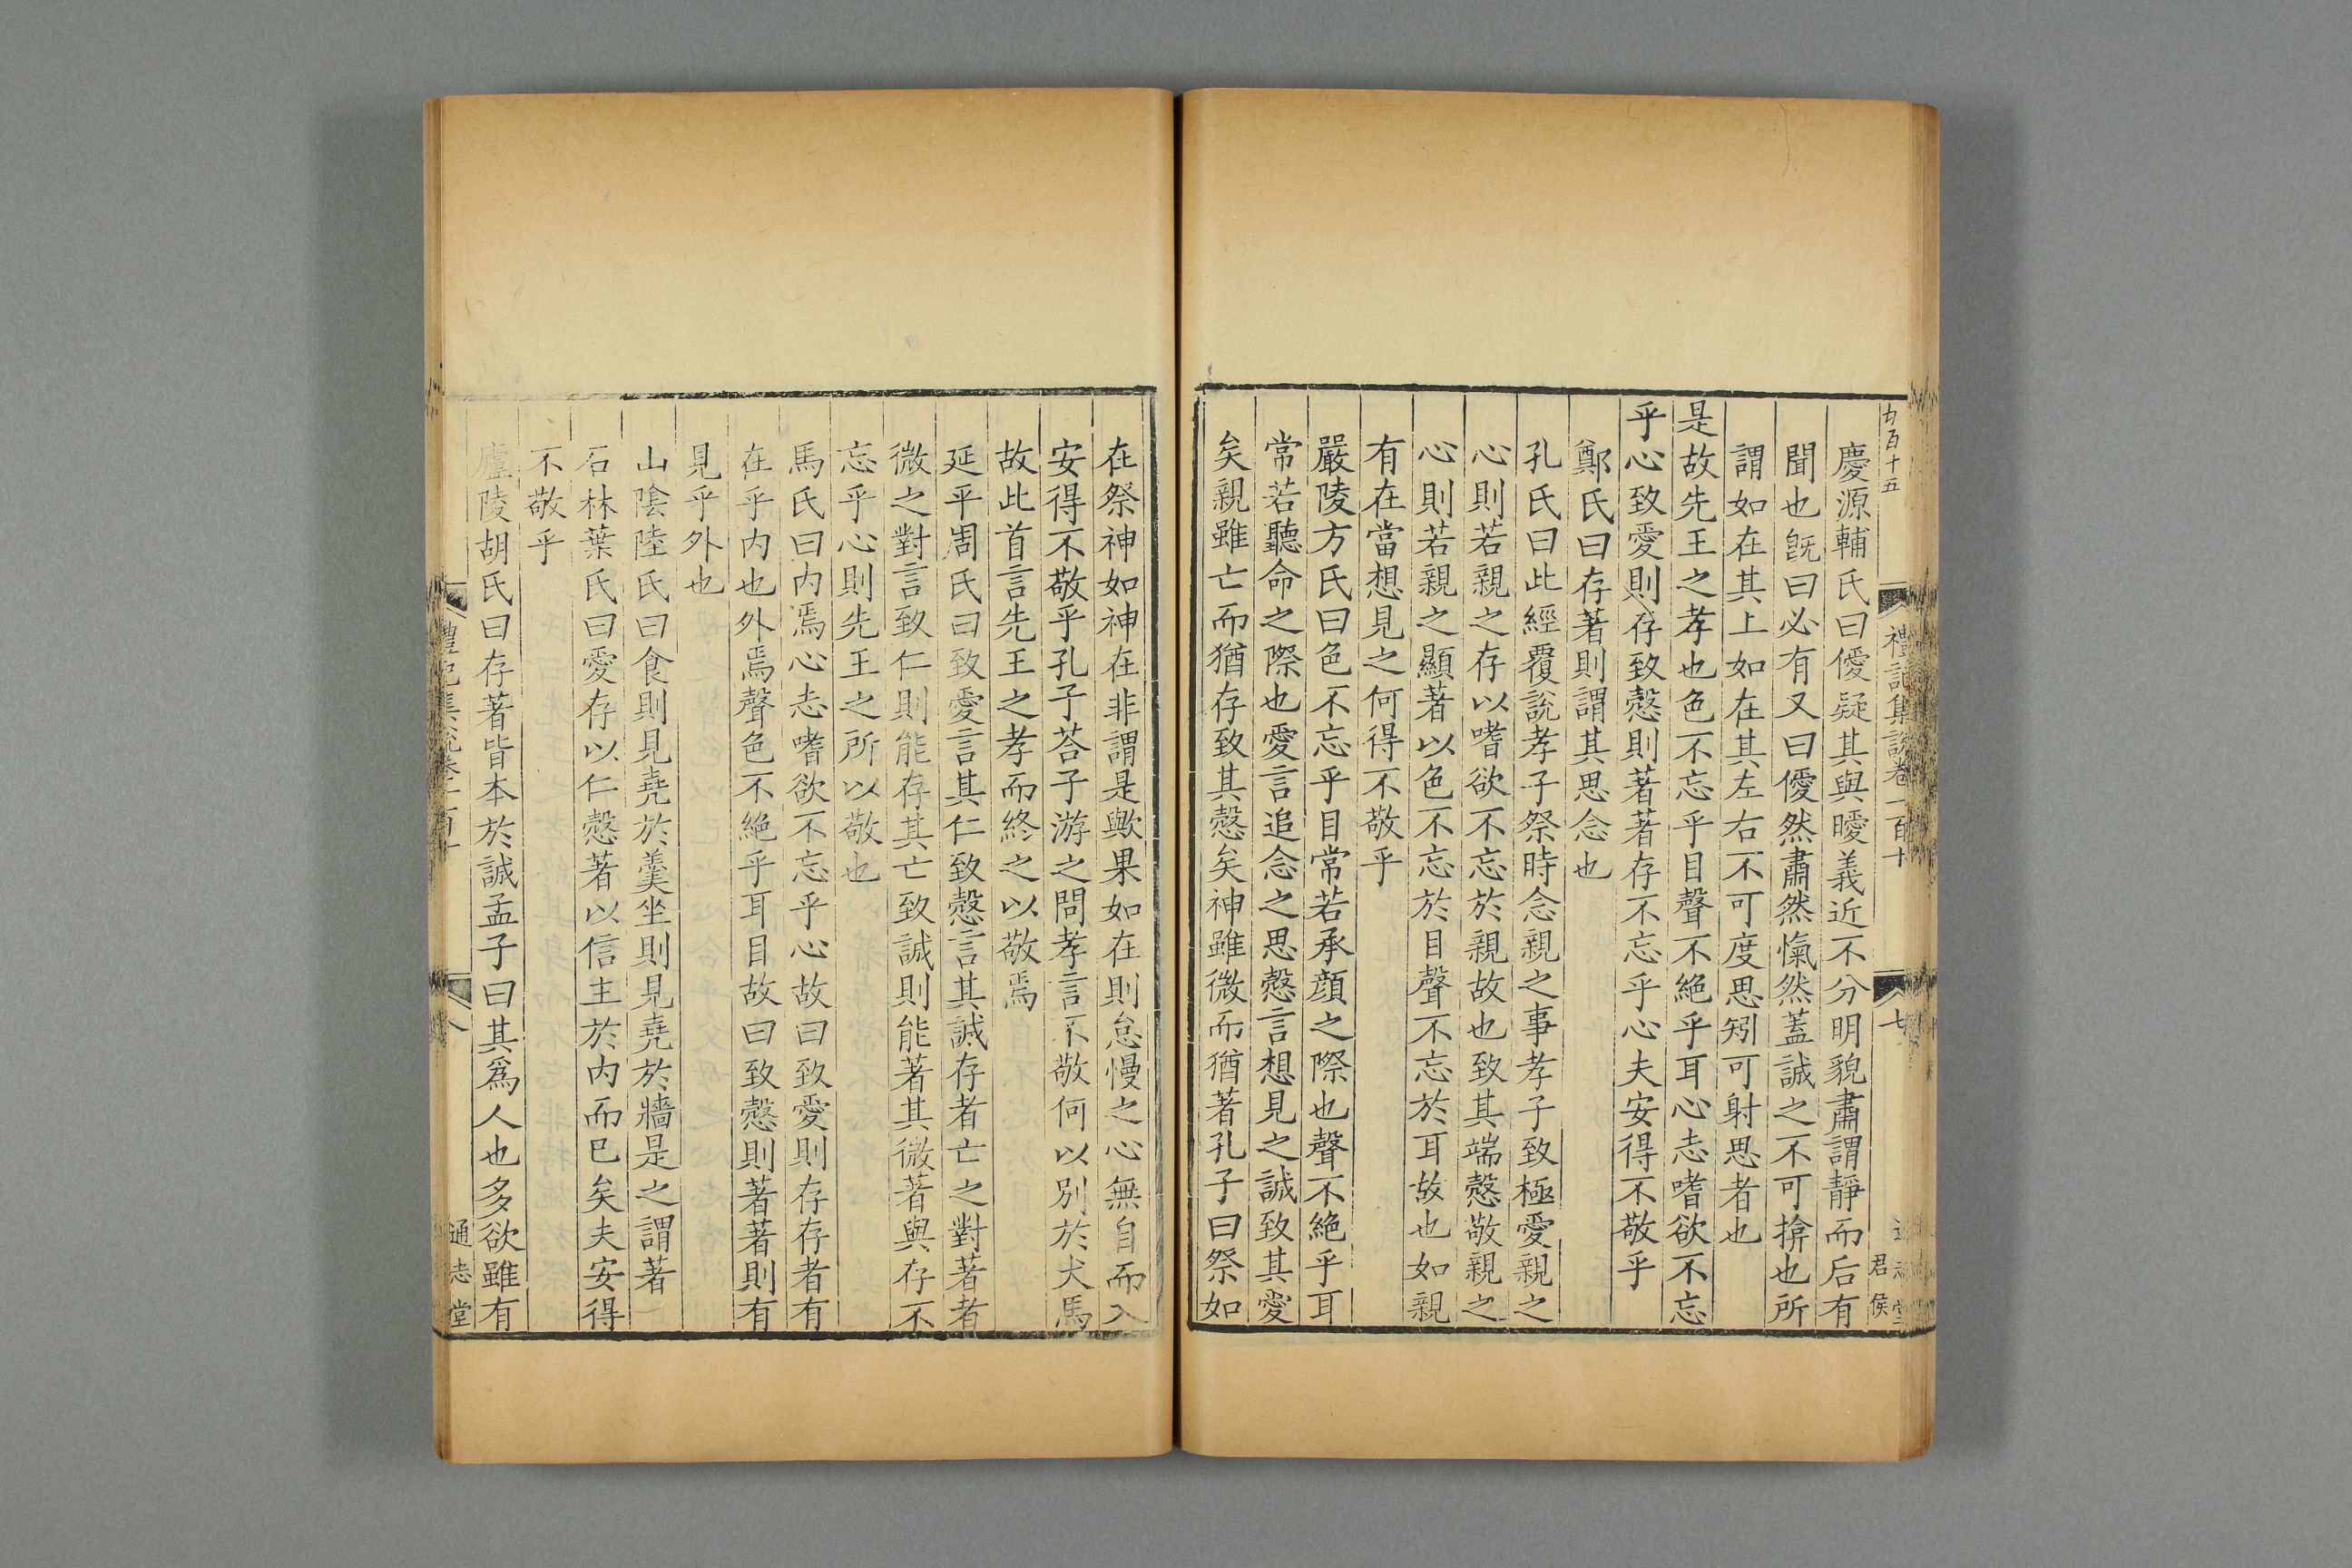 慶源輔氏曰僾疑其與曖義近不分明貌肅謂靜而后有
聞也旣曰必有又曰僾然肅然愾然蓋誠之不可揜也所
謂如在其上如在其左右不可度思矧可射思者也
是故先王之孝也色不忘乎目聲不絕乎耳心志嗜欲不忘
乎心致愛則存致慤則著著存不忘乎心夫安得不敬乎
鄭氏曰存著則謂其思念也
孔氏曰此經覆說孝子祭時念親之事孝子致極愛親之
心則若親之存以嗜欲不忘於親故也致其端慤敬親之
心則若親之顯著以色不忘於目聲不忘於耳故也如親
有在當想見之何得不敬乎
嚴陵方氏曰色不忘乎目常若承顔之際也聲不絕乎耳
常若聽命之際也愛言追念之思慤言想見之誠致其愛
矣親雖亡而猶存致其慤矣神雖微而猶著孔子曰祭如
在祭神如神在非謂是歟果如在則怠慢之心無自而入
安得不敬乎孔子荅子游之問孝言不敬何以別於犬馬
故此首言先王之孝而終之以敬焉
延平周氏曰致愛言其仁致慤言其誠存者亡之對著者
微之對言致仁則能存其亡致誠則能著其微著與存不
忘乎心則先王之所以敬也
馬氏曰内焉心志嗜欲不忘乎心故曰致愛則存存者有
在乎内也外焉聲色不絕乎耳目故曰致慤則著著則有
見乎外也
山陰陸氏曰食則見堯於羹坐則見堯於牆是之謂著
石林葉氏曰愛存以仁慤著以信主於内而已矣夫安得
不敬乎
廬陵胡氏曰存著皆本於誠孟子曰其爲人也多欲雖有
禮記集說卷一百十
七
君侯
八
通志堂